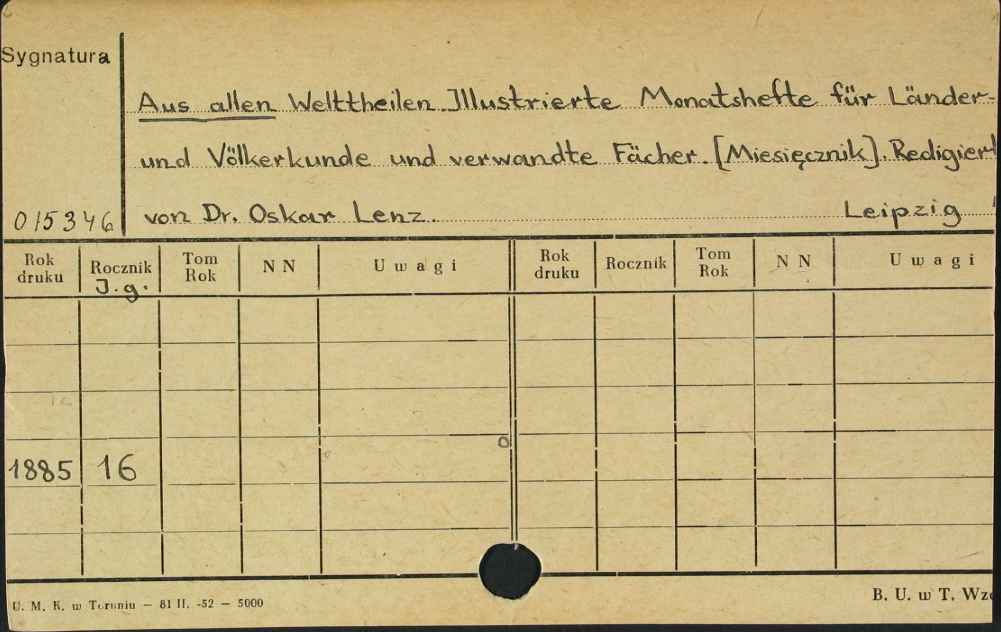 Sygnatura
Aus allen Welttheilen. Illustrierte Monatshefte für Länder-
und Völkerkunde und verwandte Fächer. [Miesięcznik]. Redigiert
015346 von Dr. Oskar Lenz. Leipzig
Rok druku Rocznik Tom Rok N N Uwagi Rok druku Rocznik Tom Rok N N Uwagi
J.g.
1885 16
U. M. K. w Toruniu — 81 II. -52 — 5000 B. U. w T.